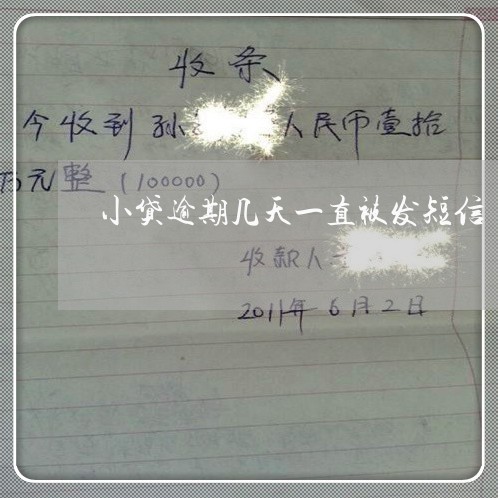 收条
今收到孙 人民币壹拾
万元整(100000)
小贷逾期几天一直被发短信
收款人
2011年6月2日